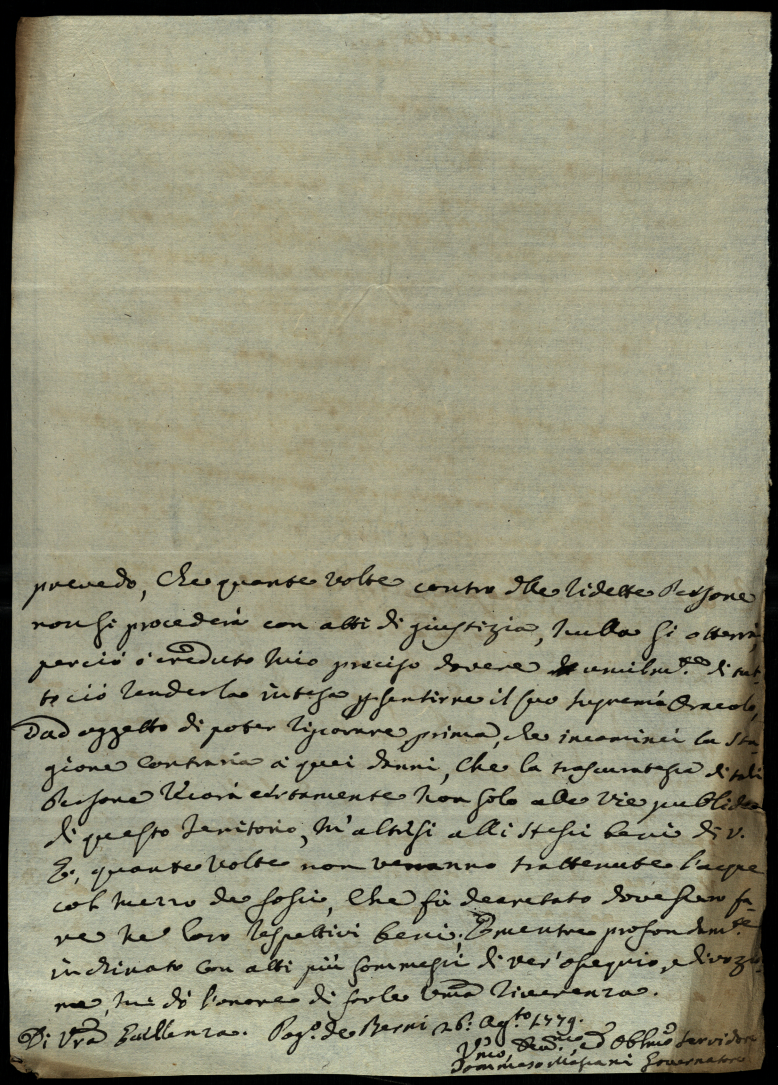 prevedo, che quante volte contro delle ridette Persone
non si procederà con atti di giustizia, nulla si otterrà,
perciò ò creduto mio preciso dovere umilm.te di tut-
to ciò renderla intesa p. sentirne il suo supremo Oracolo,
ad oggetto di poter riparare prima, che incominci la sta
gione contraria à quei danni, che la trascuratezza di tali
Persone recarà certamente non solo alle vie publiche
di questo Teritorio, m'altresi alli stessi beni di V.
E., quante volte non veranno trattenute l'acque
col mezzo de fossi, che fù decretato dovessero fa-
re ne loro respettivi beni; E mentre profondam.te
inchinato con atti più sommessi di ver'ossequio, e divozio
ne, mi dò l'onore di farle uma riverenza.
Di Vra Eccellenza. Pog.o de Berni 26: Ag.to 1779.
Umo, Devmo, ed Obblmo Servidore
Dommaso Governatore